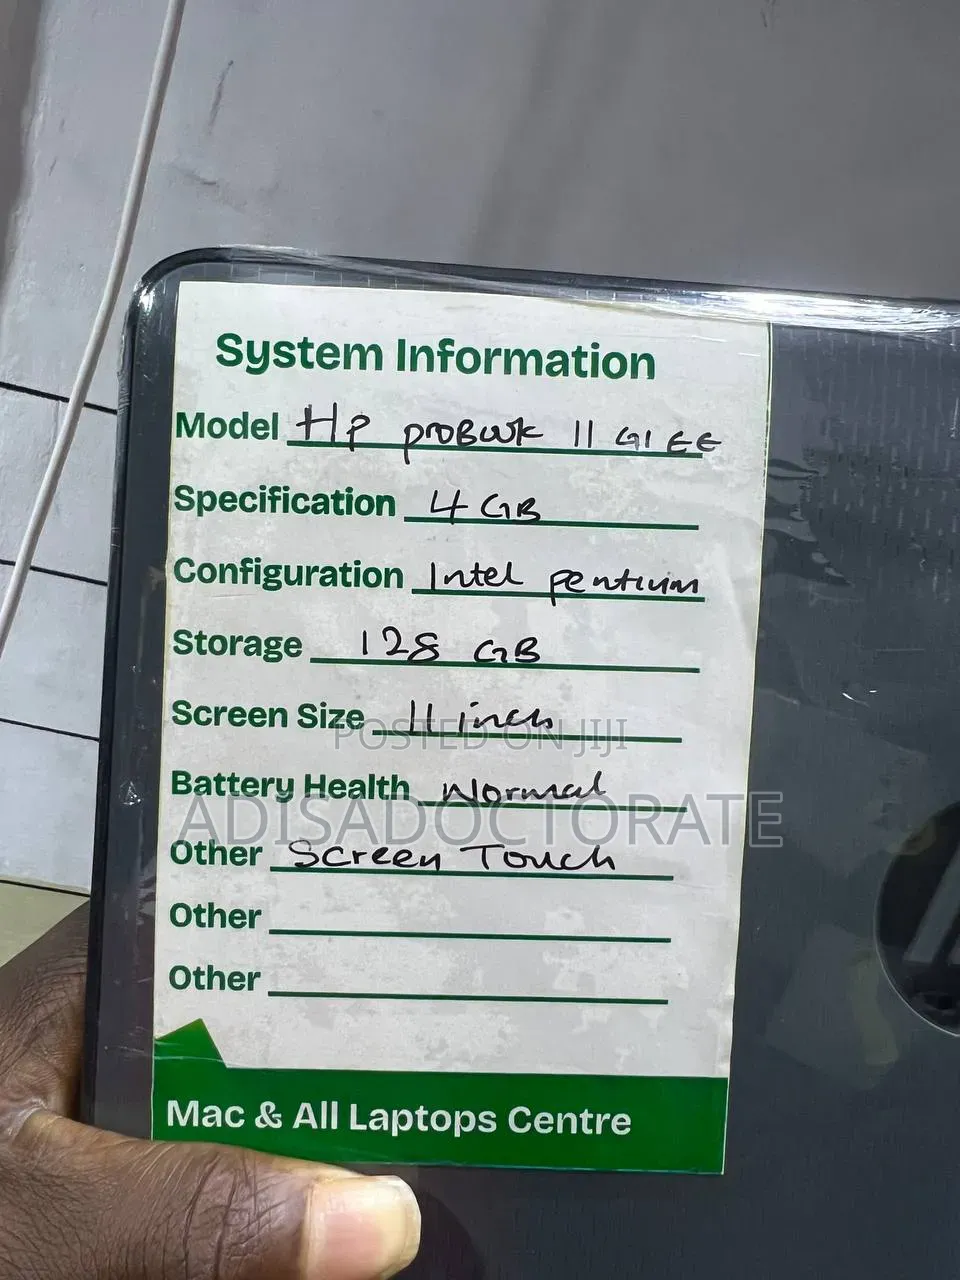 System Information
Model HP proBook 11 G1 EE
Specification 4GB
Configuration Intel pentium
Storage 128 GB
Screen Size 11 inch
POSTED ON JIJI
Battery Health Normal
ADISADOCTORATE
Other Screen Touch
Other
Other
Mac & All Laptops Centre